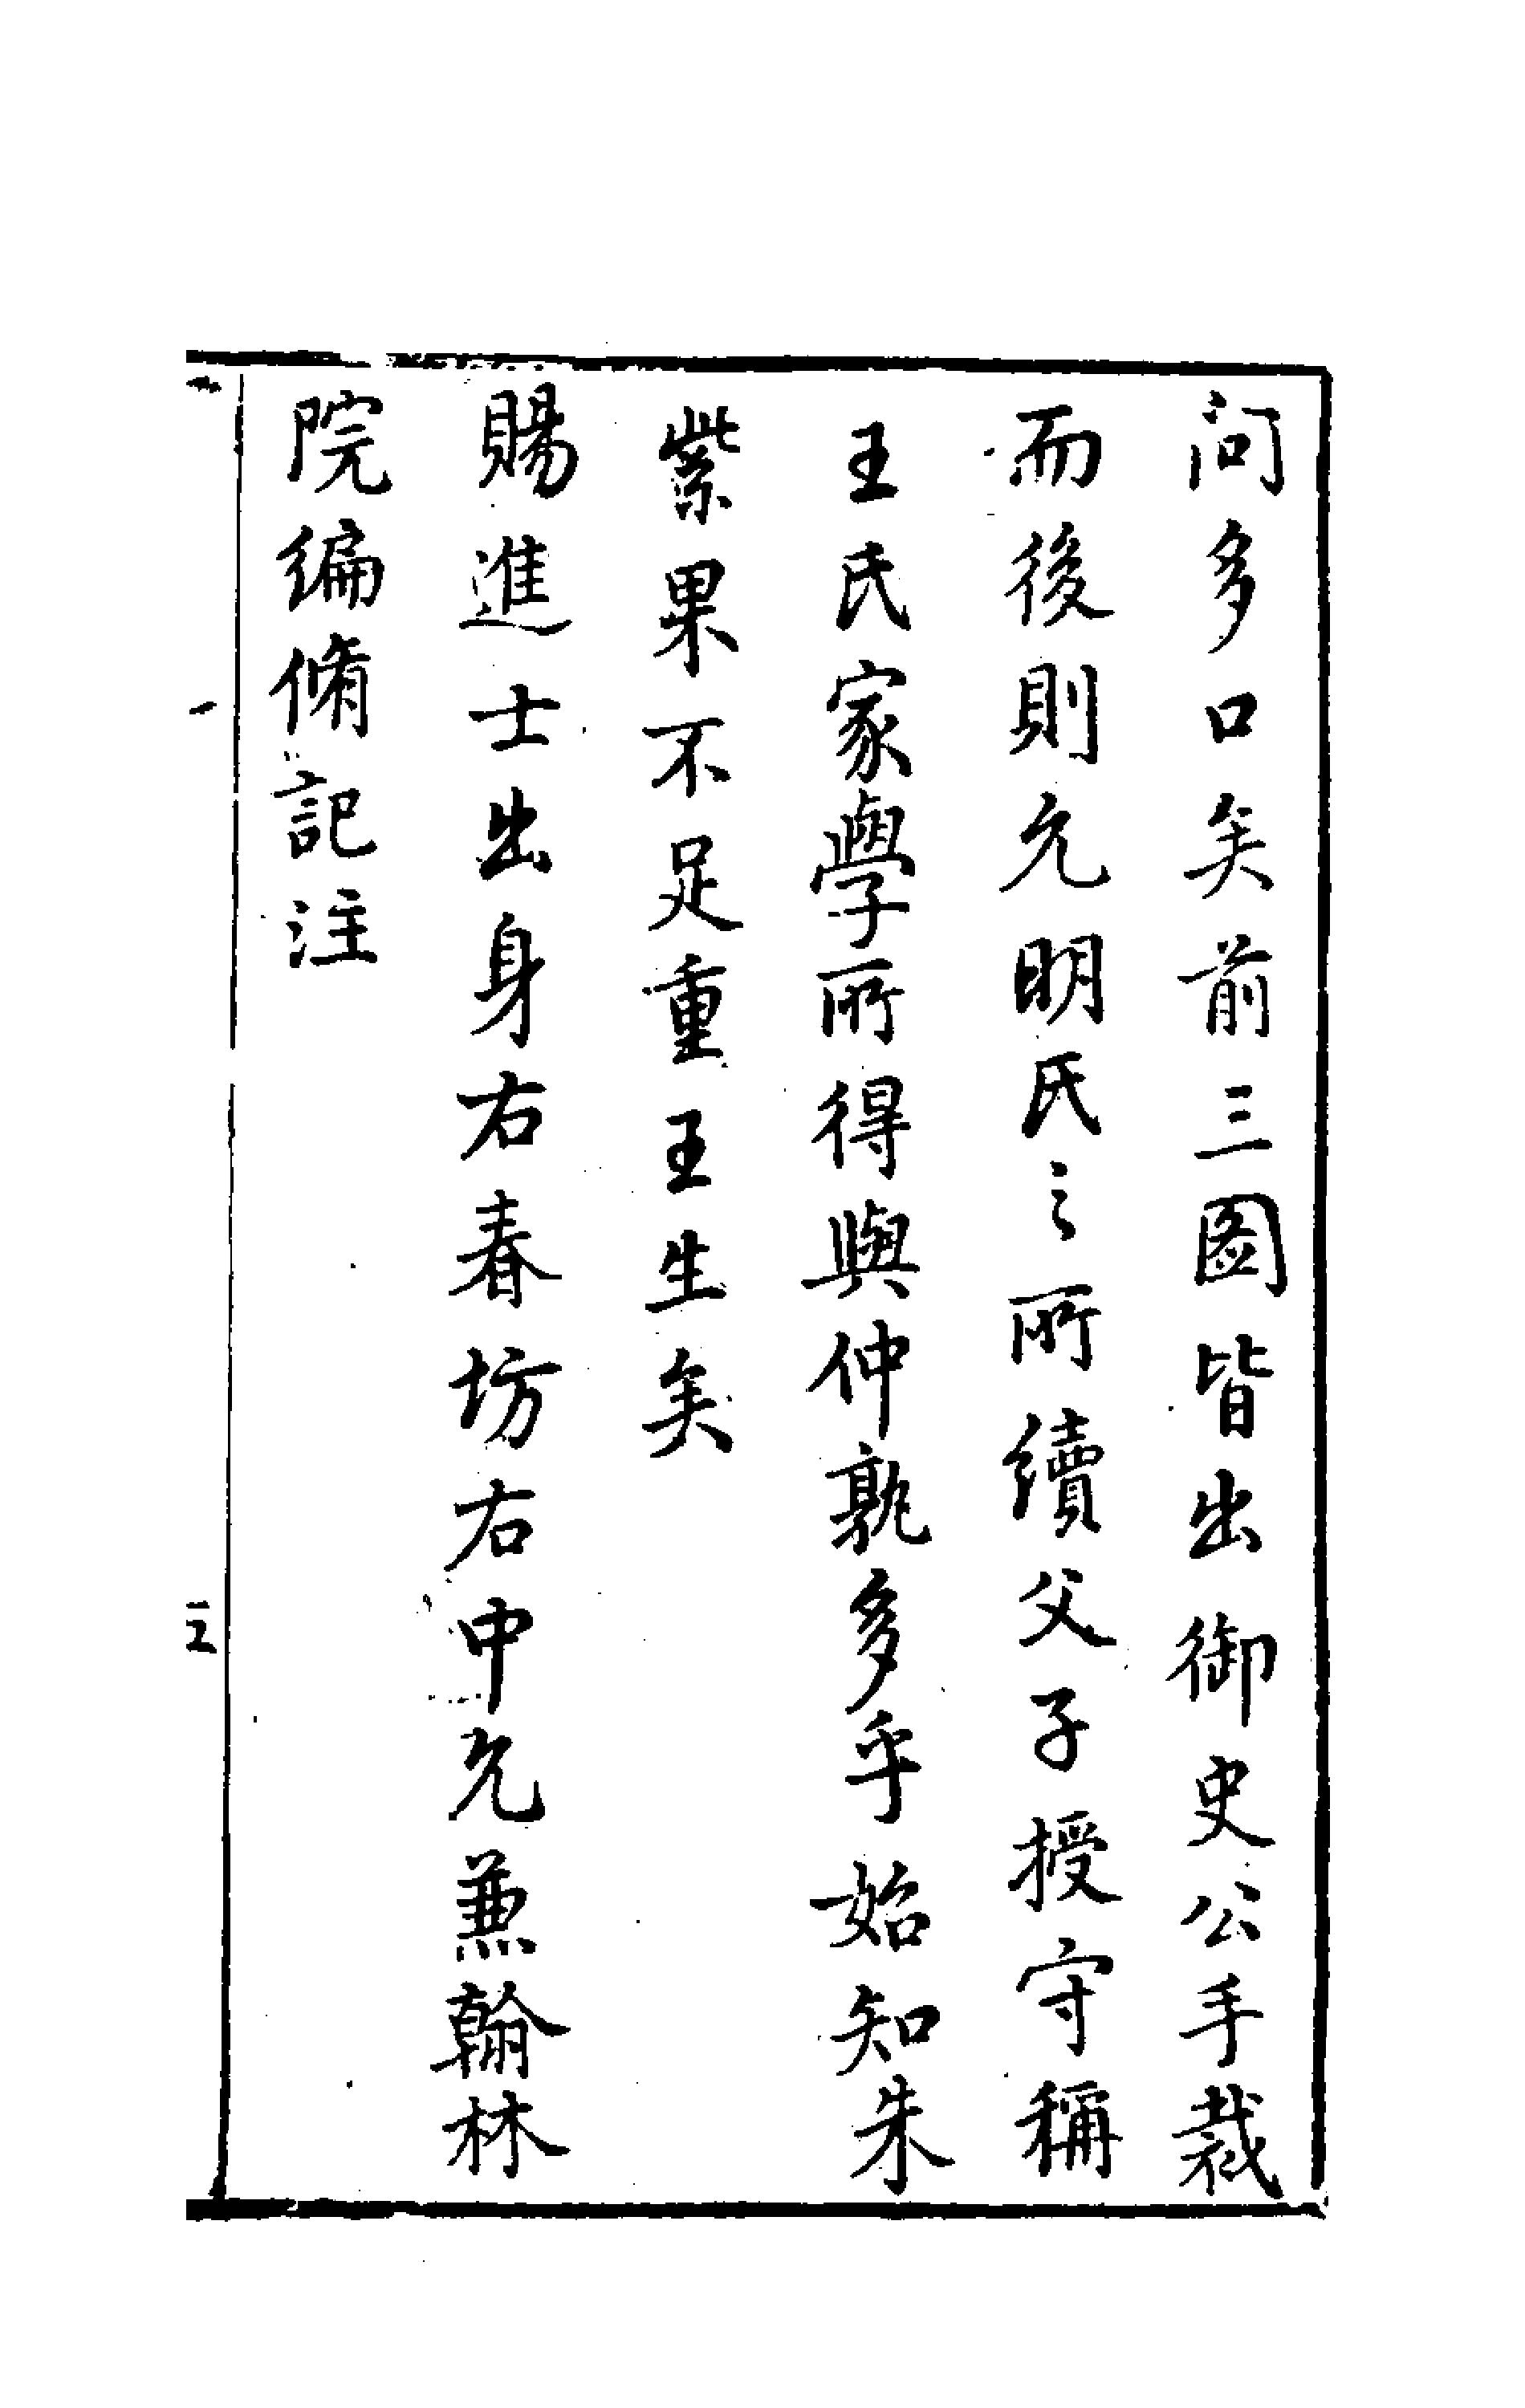 问多口矣前三圖皆出御史公手裁
而後則允明氏之所續父子授守稱
王氏家學所得與仲孰多乎始知朱
紫果不足重王生矣
賜進士出身右春坊右中允兼翰林
院編脩記注